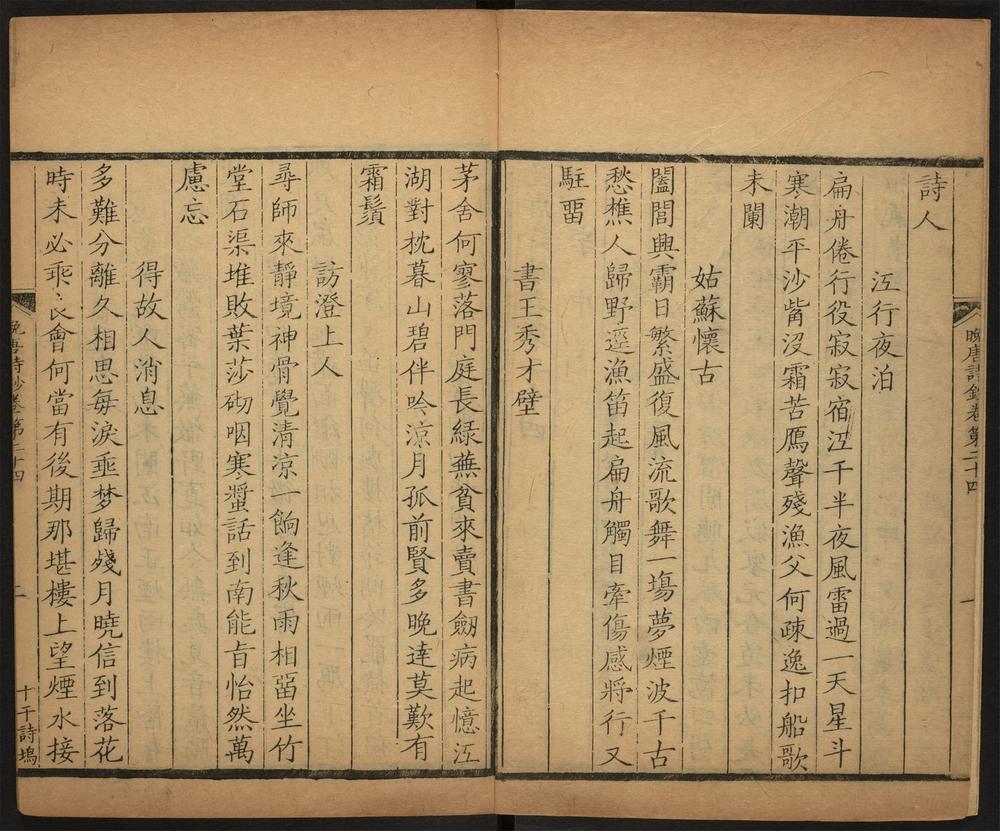 晚唐詩鈔卷第二十四
一
詩人
江行夜泊
扁舟倦行役寂寂宿江干半夜風雷過一天星斗
寒潮平沙觜沒霜苦鴈聲殘漁父何疎逸扣船歌
未闌
姑蘇懷古
闔閭興霸日繁盛復風流歌舞一場夢煙波千古
愁樵人歸野逕漁笛起扁舟觸目牽傷感將行又
駐畱
書王秀才壁
茅舍何寥落門庭長綠蕪貧來賣書劒病起憶江
湖對枕暮山碧伴吟涼月孤前賢多晚達莫歎有
霜鬚
訪澄上人
尋師來靜境神骨覺清涼一餉逢秋雨相畱坐竹
堂石渠堆敗葉莎砌咽寒螿話到南能旨怡然萬
慮忘
得故人消息
多難分離久相思每淚垂梦歸殘月曉信到落花
時未必乖良會何當有後期那堪樓上望煙水接
晚唐詩鈔卷第二十四
二
十干詩塢